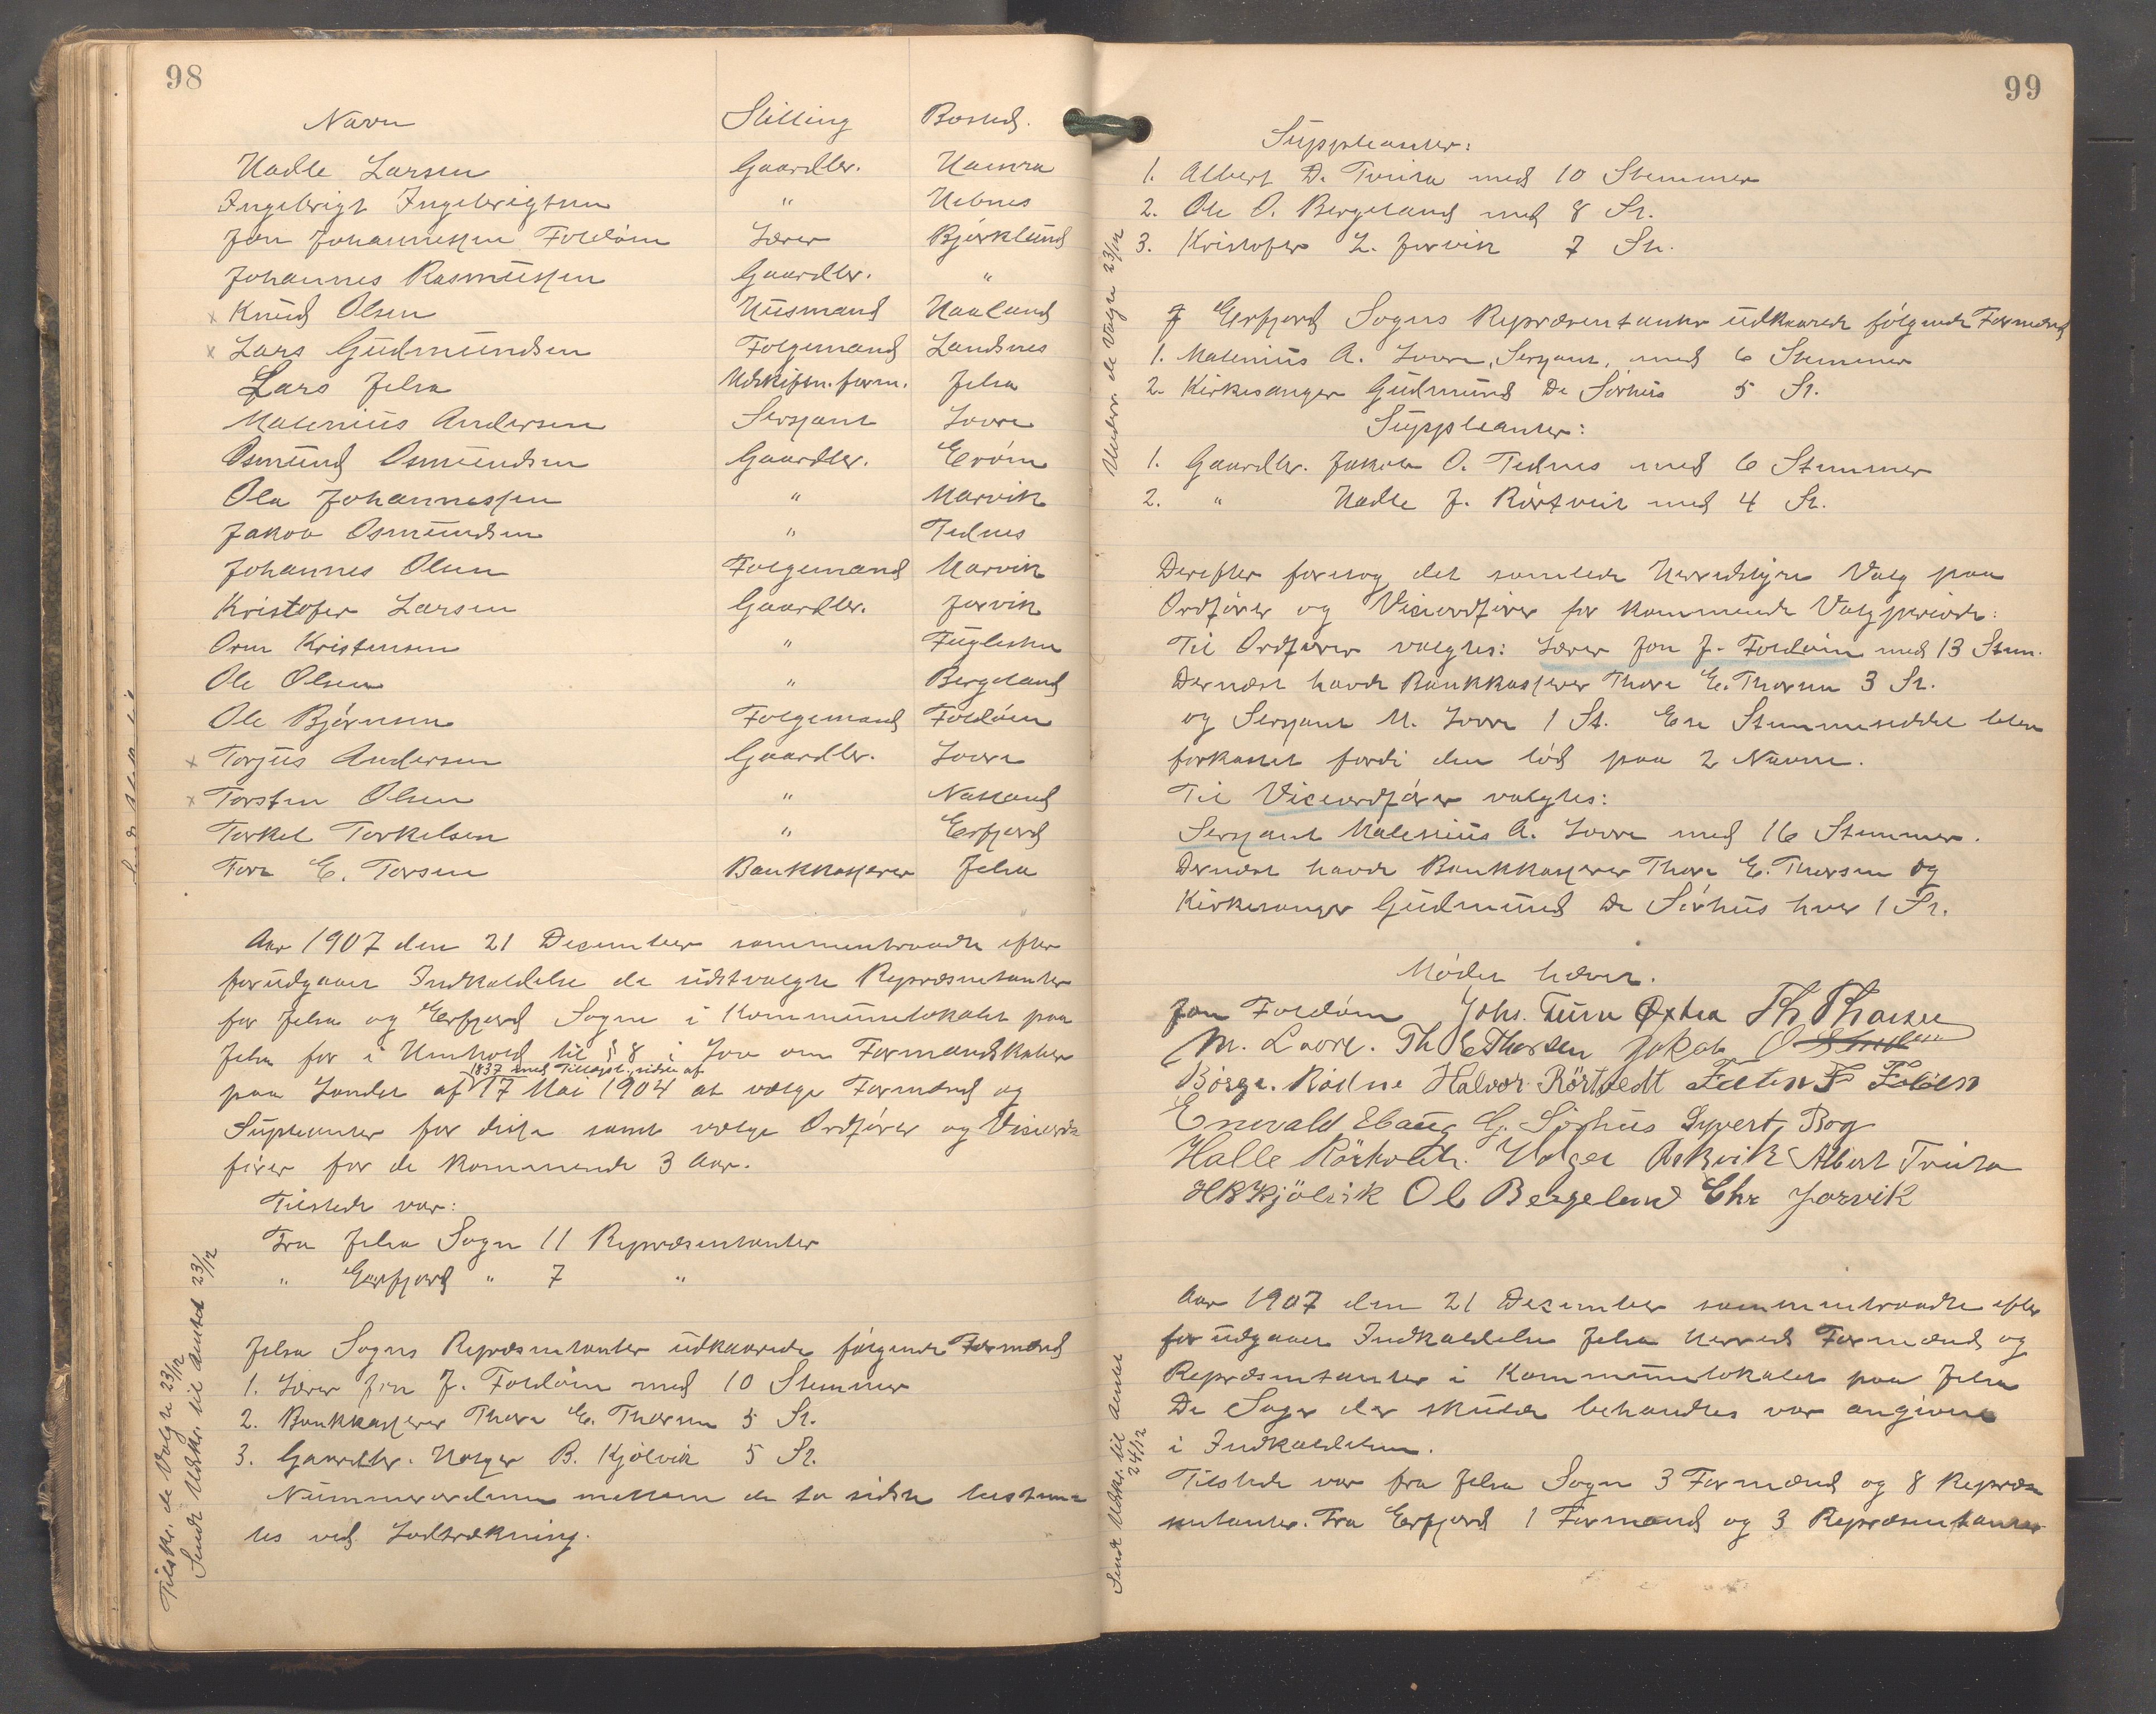 98
Navn Stilling Bosted.
Hadle Larsen Gaardbr. Hamra
Ingebrigt Ingebrigtsen " Hebnes
Jon Johannessen Foldøin Lærer Bjørklund
Johannes Rasmussen Gaardbr. "
x Knud Olsen Husmand Haaland
x Lars Gudmundsen Folgemand Landsnes
Lars Jelsa Udskiftn.form. Jelsa
Malenius Andersen Serjant Lovre
Osmund Osmundsen Gaardbr. Erøin
Ola Johannessen " Marvik
Jakob Osmundsen " Tednes
Johannes Olsen Folgemand Marvik
Kristofer Larsen Gaardbr. Jorvik
Orm Kristensen " Fuglesten
Ole Olsen " Bergeland
Ole Bjørnsen Folgemand Foldøin
x Torjus Andersen Gaardbr. Lovra
x Torsten Olsen " Nakand
Torkel Torkelsen " Erfjord
Tore E. Torsen Bankkasserer Jelsa
Aar 1907 den 21 December sammentraadte efter
forudgaaet Indkaldelse de nistvalgte Repræsentanter
for Jelsa og Erfjord Sogne i Kommunelokalet paa
Jelsa for i Henhold til § 8 i Lov om Formandskaber
1837 med Tillægsl., sidst af
paa Landet af 17 Mai 1904 at vælge Formænd og
Supleanter for disse samt vælge Ordfører og Viseord-
fører for de kommende 3 Aar.
Tilstede var:
Fra Jelsa Sogn 11 Repræsentanter
" Erfjord " 7 "
Jelsa Sogns Repræsentanter udkaarede følgende Formænd
1. Lærer Jon J. Foldøin med 10 Stemmer
2. Bankkasserer Thore E. Thorsen 5 St.
3. Gaardbr. Holger B. Kjølvik 5 St.
Nummerordenen mellem de to sidste bestem-
tes ved Lodtrækning.
Tilskr. de Valgte 23/12
Sendt Udskr. til Amtet 23/12
99
Suppleanter:
1. Albert D. Tveita med 10 Stemmer
2. Ole O. Bergeland med 8 St.
3. Kristofer L. Jorvik 7 St.
Underr. de Valgte 23/12
I Erfjord Sogns Repræsentanter udkaarede følgende Formænd
1. Malenius A. Lovre, Serjant, med 6 Stemmer
2. Kirkesanger Gudmund D. Sørhus 5 St.
Suppleanter:
1. Gaardbr. Jakob O. Tednes med 6 Stemmer
2. " Hadle J. Rørtveit med 4 St.
Derefter foretog det samlede Herredstyre Valg paa
Ordfører og Viseordfører for kommende Valgperiode:
Til Ordfører valgtes: Lærer Jon J. Foldøin med 13 Stem.
Dernæst havde Bankkasserer Thore E. Thorsen 3 St.
og Serjant M. Lovre 1 St. En Stemmeseddel blev
forkastet fordi den lød paa 2 Navne.
Til Viseordfører valgtes:
Serjant Malenius A. Lovre med 16 Stemmer.
Dernæst havde Bankkasserer Thore E. Thorsen og
Kirkesanger Gudmund D. Sørhus hver 1 St.
Mødet hævet.
Jon Foldøin Johs.
M. Lovre. Th E Thorsen Jakob O
Børge. Rødne Halvor Rörtvedt
Enevald Ebaug G. Sørhus Syvert Bog
Halle Holger Askvik Albert Tveita
HBKjölvik Ol Bergeland Chr Jorvik
Aar 1907 den 21 December sammentraadte efter
forudgaaet Indkaldelse Jelsa Herreds Formænd og
Repræsentanter i Kommunelokalet paa Jelsa
De Sager der skulde behandles var angivne
i Indkaldelsen.
Tilstede var fra Jelsa Sogn 3 Formænd og 8 Repræ-
sentanter. Fra Erfjord 1 Formand og 3 Repræsentanter
Sendt Udskr. til Amtet
24/12